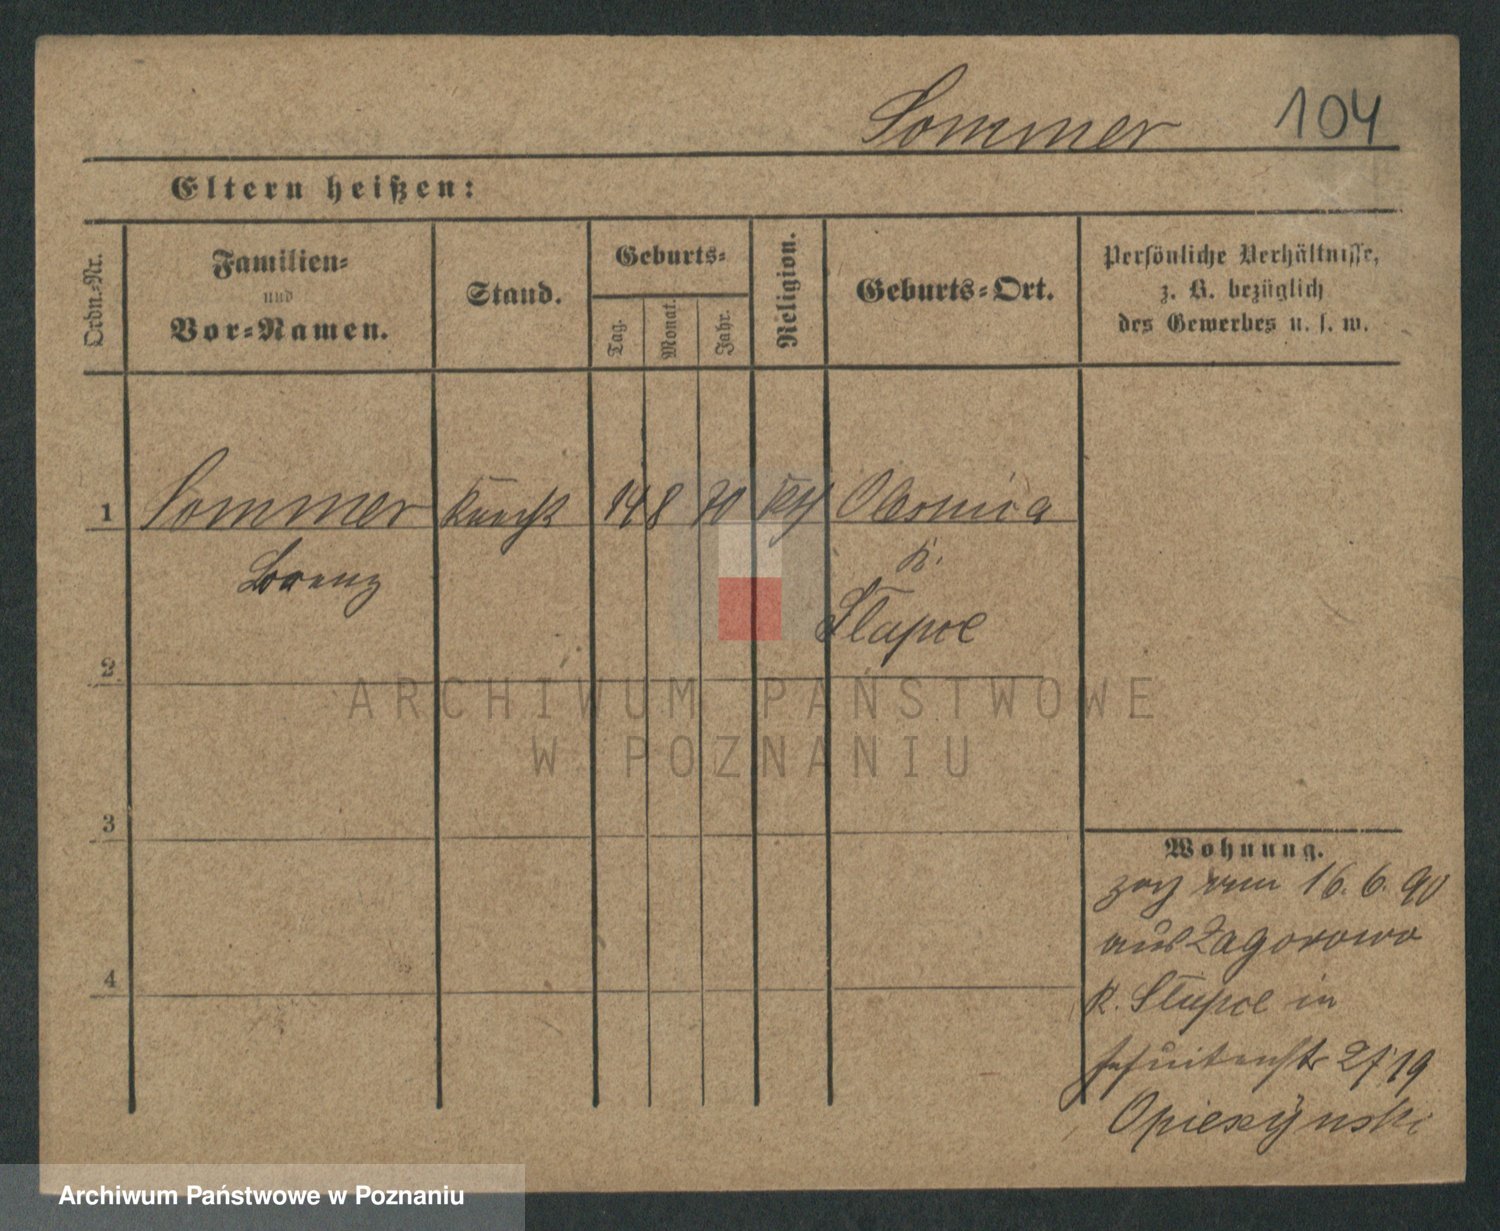 Sommer 104
Eltern heißen:
Ordn.-Nr.
Familien-
und
Vor-Namen.
Stand.
Geburts-
Tag.
Monat.
Jahr.
Religion.
Geburts-Ort.
Persönliche Verhältnisse,
z. B. bezüglich
des Gewerbes u. s. w.
1 Sommer Knecht 14 8 70 kth
Lorenz
K.
Slupce
2
3
4
Wohnung.
zog vom 16. 6. 90
aus Zagorowo
K. Slupce in
Jesuitenstr
ARCHIWUM PAŃSTWOWE
W POZNANIU
Archiwum Państwowe w Poznaniu